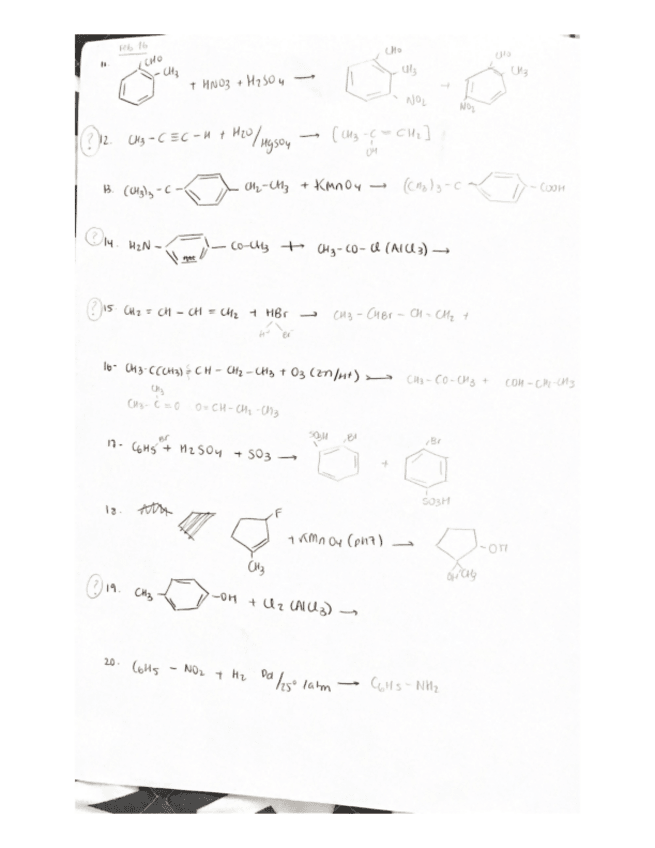 11. CHO CH3 + HNO3 + H2SO4 → CHO CH3 NO2 + CHO CH3 NO2
? 12. CH3 - C ≡ C - H + H2O/HgSO4 → [CH3 - C = CH2] OH
13. (CH3)3 - C - CH2 - CH3 + KMnO4 → (CH3)3 - C - COOH
? 14. H2N - CO - CH3 + CH3 - CO - Cl (AlCl3) →
? 15. CH2 = CH - CH = CH2 + HBr → CH3 - CHBr - CH = CH2 +
H+ Br-
16- CH3-C(CH3) = CH - CH2 - CH3 + O3 (Zn/H+) → CH3 - CO - CH3 + COH - CH2 - CH3
CH3
CH3 - C = O O = CH - CH2 - CH3
17- C6H5 Br + H2SO4 + SO3 → SO3H Br + Br SO3H
18. F CH3 + KMnO4 (pH7) → OH OH CH3
? 19. CH3 - OH + Cl2 (AlCl3) →
20. C6H5 - NO2 + H2 Pd/25° 1atm → C6H5 - NH2